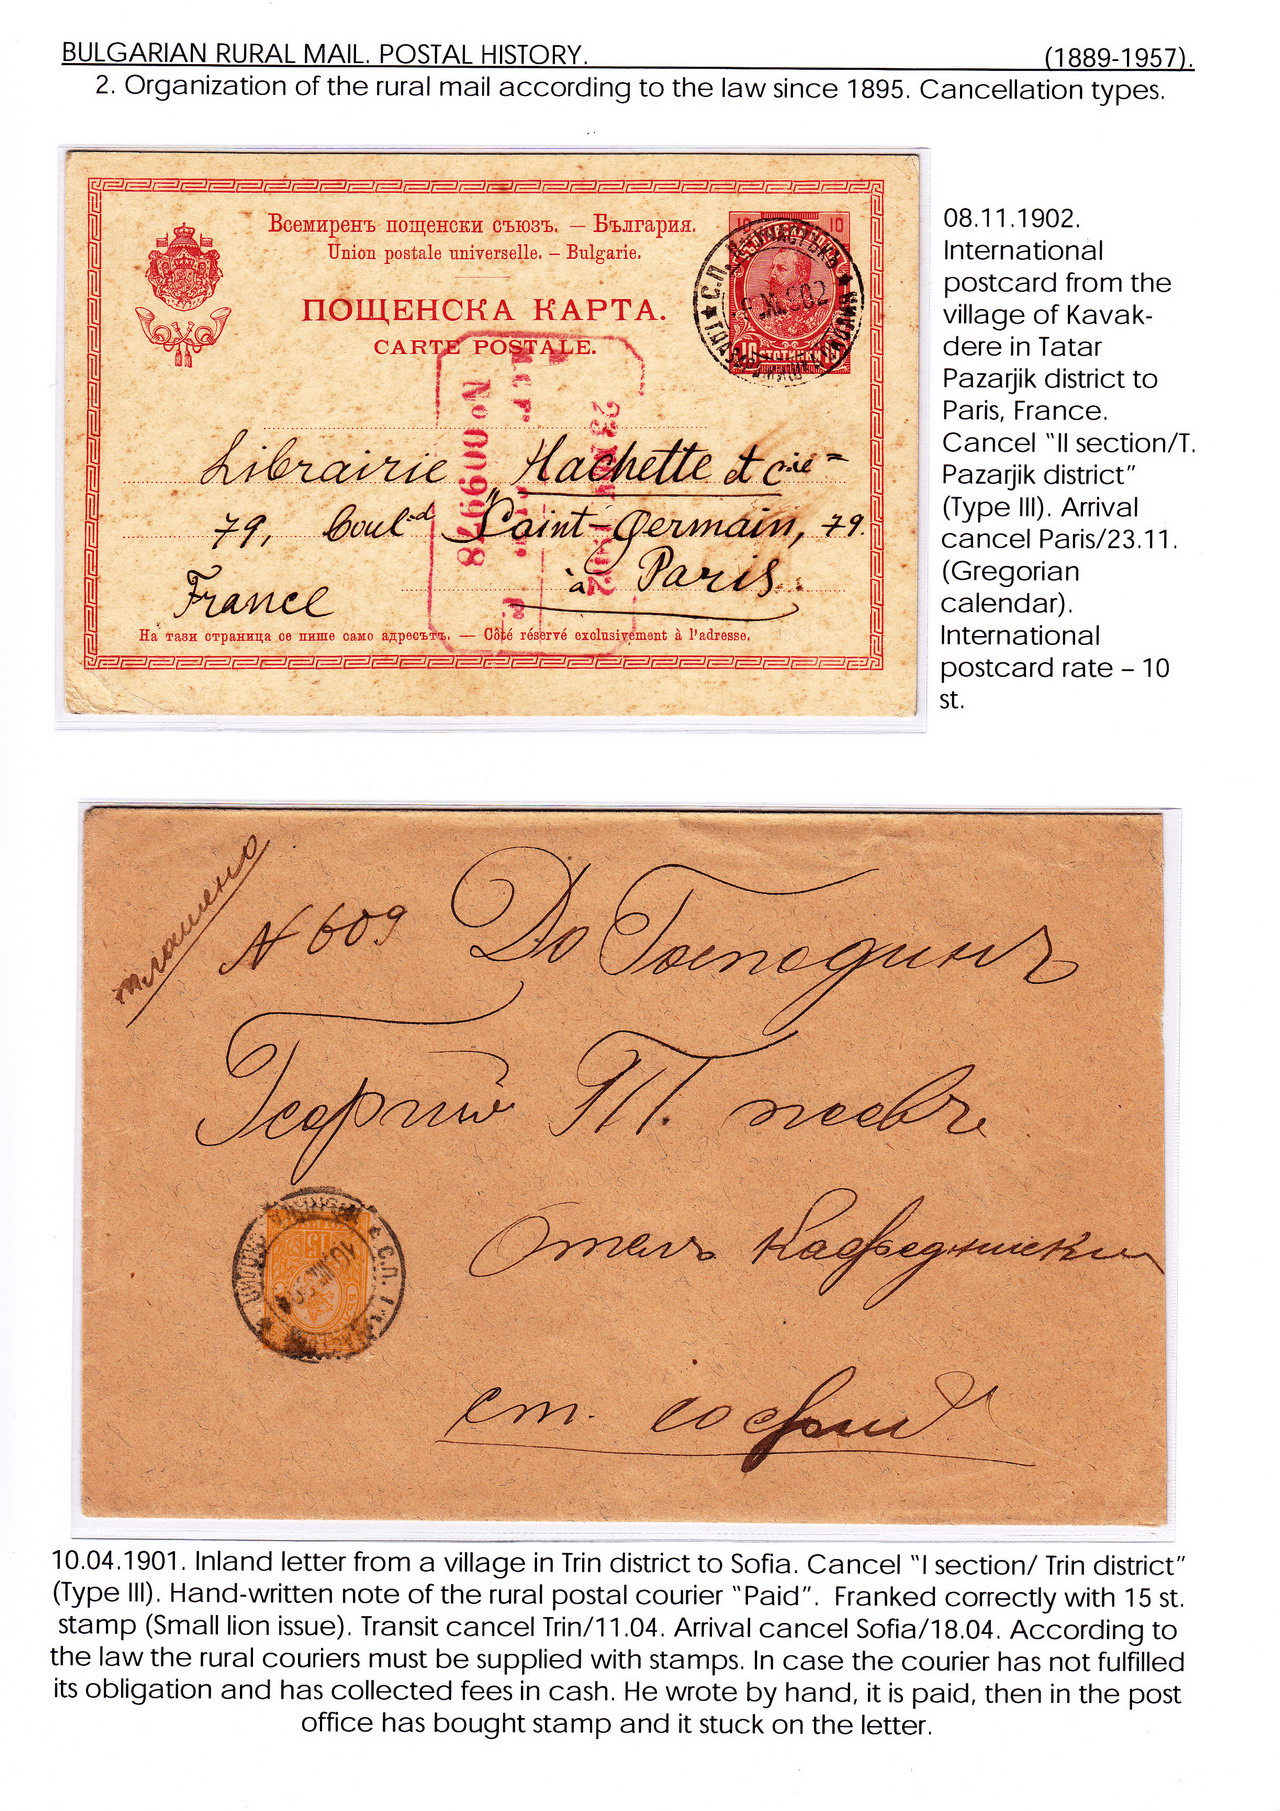 BULGARIAN RURAL MAIL. POSTAL HISTORY. (1889-1957).
2. Organization of the rural mail according to the law since 1895. Cancellation types.
Всемиренъ пощенски съюзъ. — България.
Union postale universelle. — Bulgarie.
ПОЩЕНСКА КАРТА.
CARTE POSTALE.
10 10
С.П.
No 009978
Librairie Hachette et Cie =
79, Boul-d Saint-Germain, 79.
à Paris.
France
На тази страница се пише само адресътъ. — Côté réservé exclusivement à l'adresse.
08.11.1902.
International
postcard from the
village of Kavak-
dere in Tatar
Pazarjik district to
Paris, France.
Cancel "II section/T.
Pazarjik district"
(Type III). Arrival
cancel Paris/23.11.
(Gregorian
calendar).
International
postcard rate – 10
st.
плошено
N 609 До Господинъ
Георгий П.
Отелъ
ст. София
15
С.П.
10.04.1901. Inland letter from a village in Trin district to Sofia. Cancel "I section/ Trin district"
(Type III). Hand-written note of the rural postal courier "Paid". Franked correctly with 15 st.
stamp (Small lion issue). Transit cancel Trin/11.04. Arrival cancel Sofia/18.04. According to
the law the rural couriers must be supplied with stamps. In case the courier has not fulfilled
its obligation and has collected fees in cash. He wrote by hand, it is paid, then in the post
office has bought stamp and it stuck on the letter.